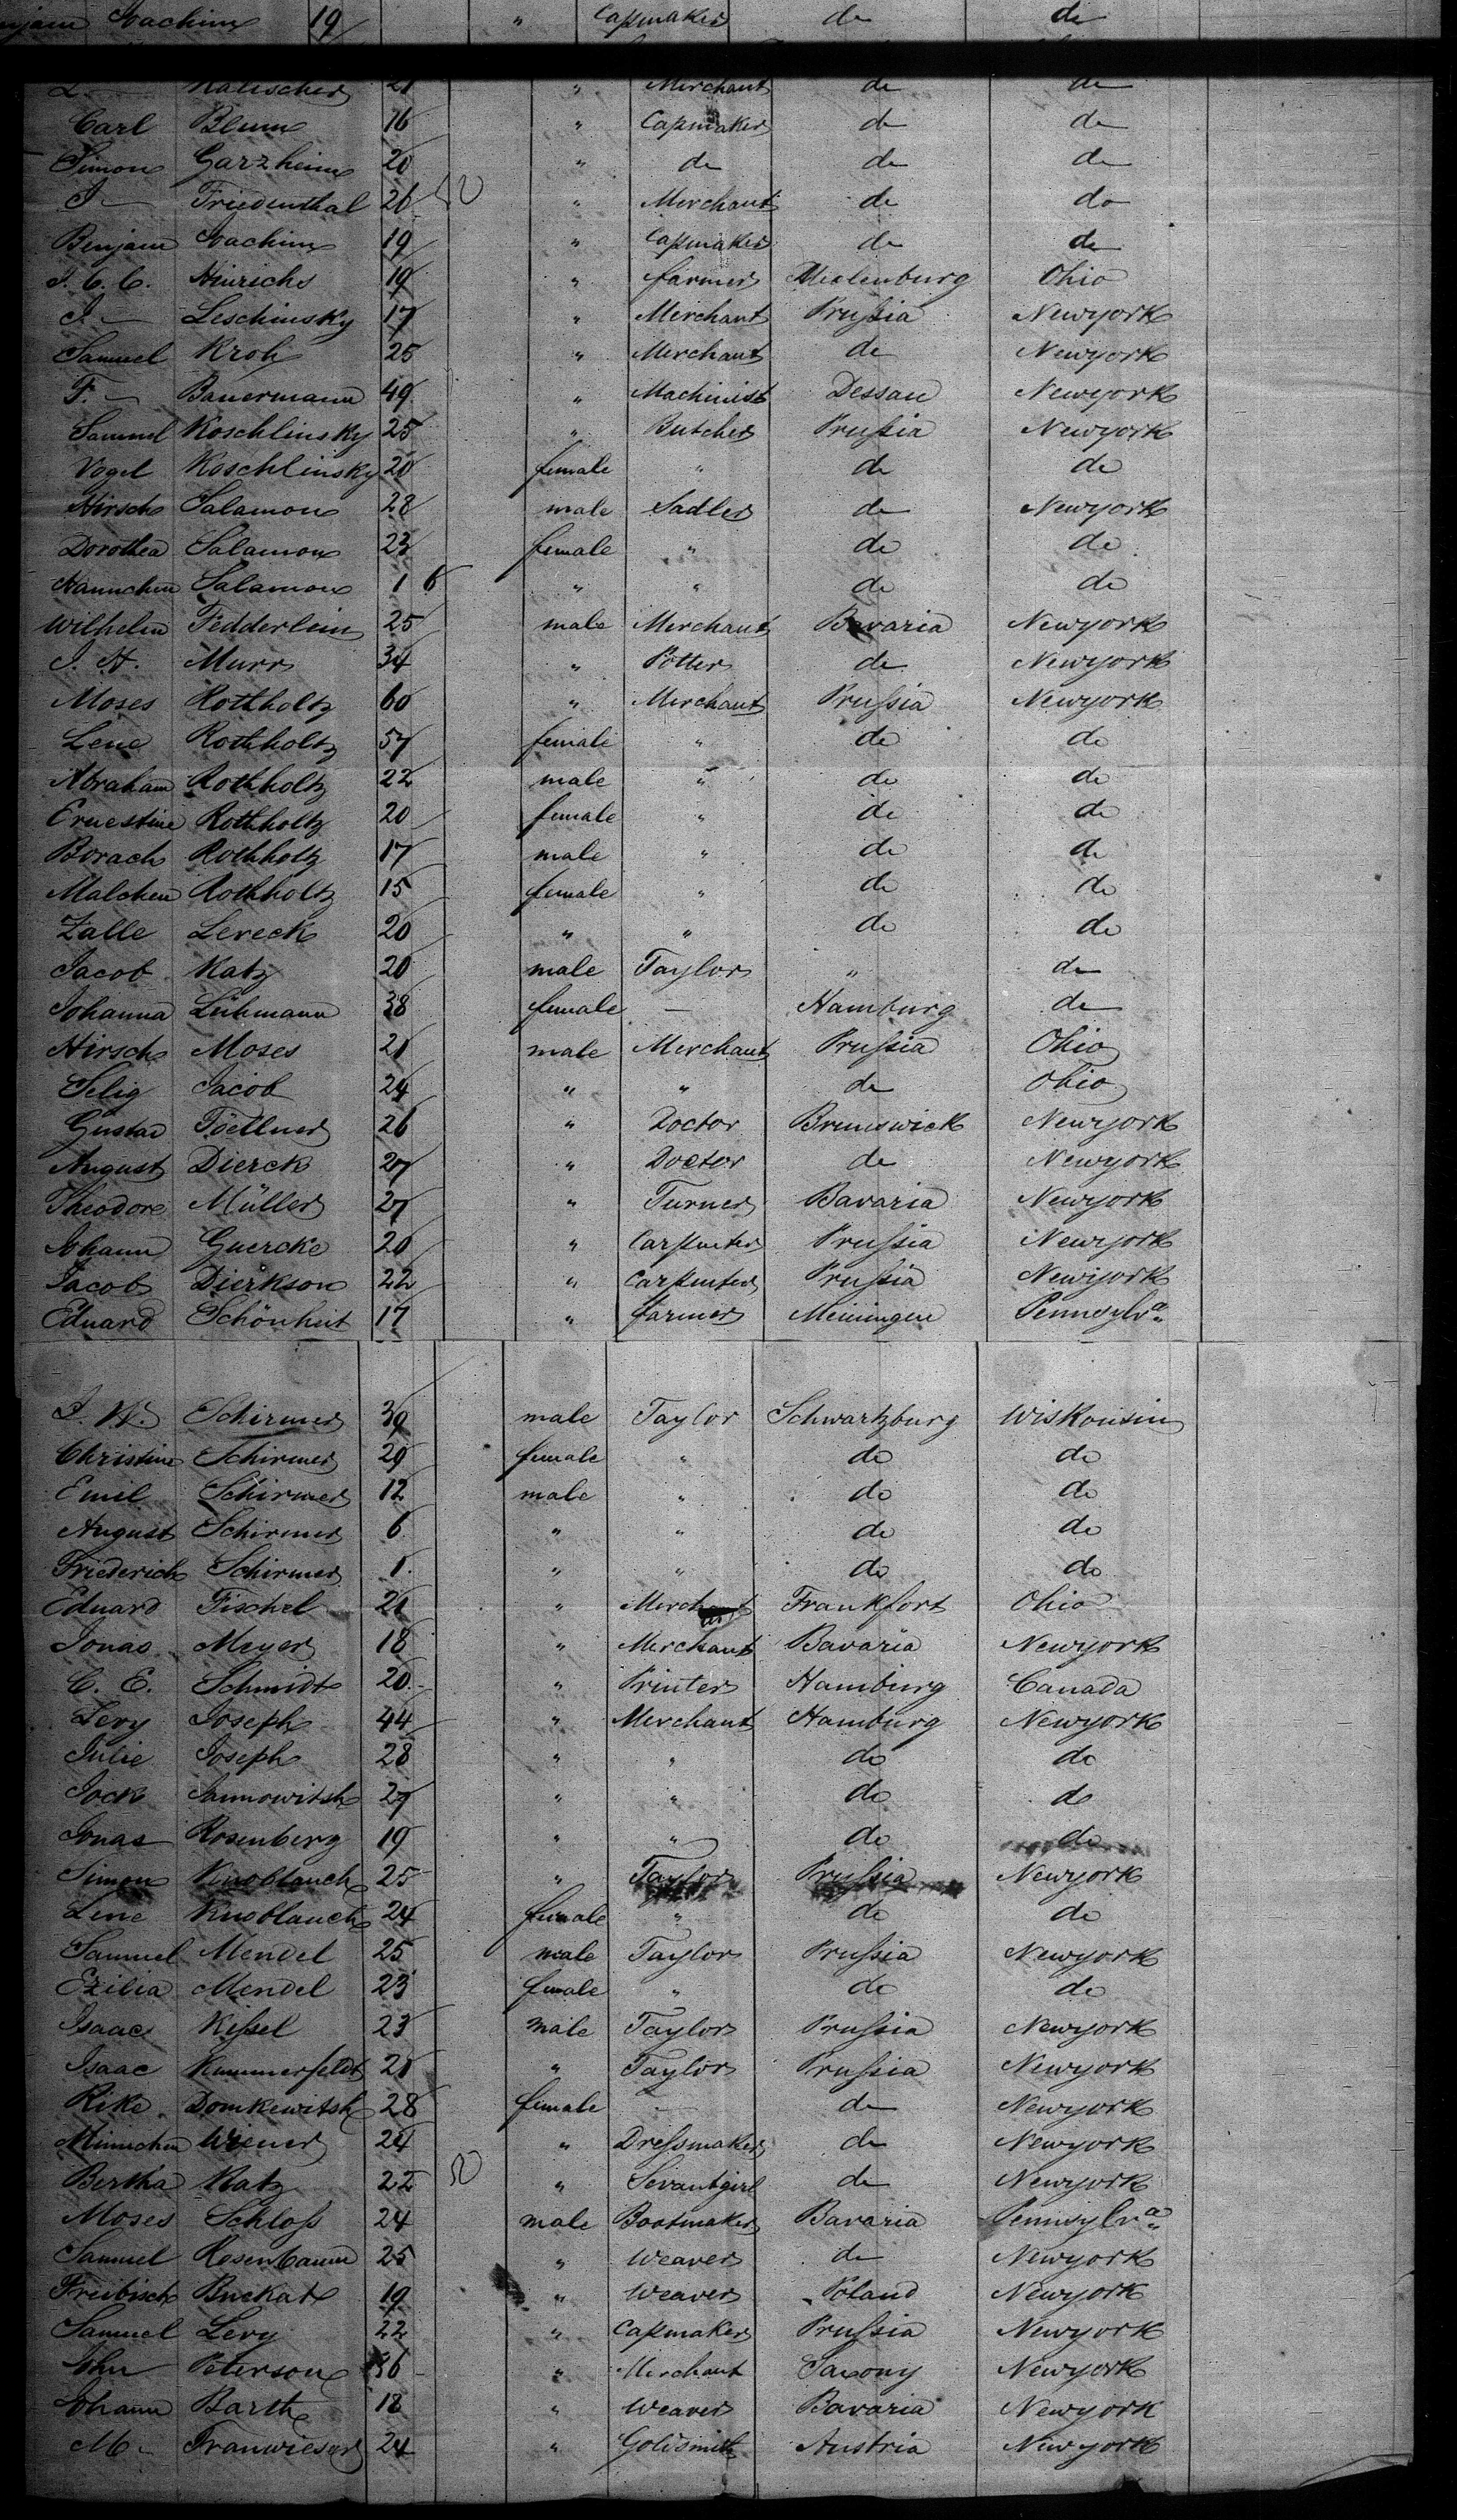 Joachim 19 " Capmaker do do
Kalischer 21 " Merchant do do
Carl Blum 16 " Capmaker do do
Simon Garzheim 20 " do do do
I — Friedenthal 26 " Merchant do do
Benjam Joachim 19 " Capmaker do do
I. C. C. Hinrichs 19 " farmer Meklenburg Ohio
I — Leschinsky 17 " Merchant Prussia Newyork
Samuel Kroh 25 " Merchant do Newyork
F. — Bauermann 49 " Machinist Dessau Newyork
Samuel Koschlinsky 25 " Butcher Prussia Newyork
Vogel Koschlinsky 20 female " do do
Hirsch Salamon 28 male Sadler do Newyork
Dorothea Salamon 23 female " do do
Hannchen Salamon 1 6 " " do do
Wilhelm Fedderlein 25 male Merchant Bavaria Newyork
I. H. Murr 34 " Potter do Newyork
Moses Rothholtz 60 " Merchant Prussia Newyork
Lene Rothholtz 57 female " do do
Abraham Rothholtz 22 male " do do
Ernestine Rothholtz 20 female " do do
Borach Rothholtz 17 male " do do
Malchen Rothholtz 15 female " do do
Zalle Lereck 20 " " do do
Jacob Katz 20 male Taylor " do
Johanna Lühmann 38 female — Hamburg do
Hirsch Moses 21 male Merchant Prussia Ohio
Selig Jacob 24 " " do Ohio
Gustav Töellner 26 " Doctor Brunswick Newyork
August Dierck 27 " Doctor do Newyork
Theodore Müller 27 " Turner Bavaria Newyork
Johann Guercke 20 " Carpenter Prussia Newyork
Jacob Dierkson 22 " Carpenter Prussia Newyork
Eduard Schönheit 17 " farmer Meiningen Pennsylva
I. W. Schirmer 39 male Taylor Schwartzburg Wiskonsin
Christine Schirmer 29 female " do do
Emil Schirmer 12 male " do do
August Schirmer 6 " " do do
Friederich Schirmer 1 " " do do
Eduard Fischel 21 " Merchant Frankfort Ohio
Jonas Meyer 18 " Merchant Bavaria Newyork
C. E. Schmidt 20 " Printer Hamburg Canada
Levy Joseph 44 " Merchant Hamburg Newyork
Julie Joseph 28 " " do do
Jock Jannowitsh 27 " " do do
Jonas Rosenberg 19 " " do do
Simon Knoblauch 25 " Taylor Prussia Newyork
Line Knoblauch 24 female " do do
Samuel Mendel 25 male Taylor Prussia Newyork
Ezilia Mendel 23 female " do do
Isaac Kissel 23 male Taylor Prussia Newyork
Isaac Kummerfeldt 21 " Taylor Prussia Newyork
Rike Domkewitsh 28 female — do Newyork
Minnchen Wiener 24 " Dressmaker do Newyork
Bertha Katz 22 " Sevantgirl do Newyork
Moses Schloss 24 male Bootmaker Bavaria Pennsylva
Samuel Rosenbaum 25 " Weaver do Newyork
Freibisch Buckat 19 " Weaver Poland Newyork
Samuel Levy 22 " Capmaker Prussia Newyork
John Peterson 36 " Merchant Saxony Newyork
Johann Barth 18 " Weaver Bavaria Newyork
M — Franwieser 24 " Goldsmith Austria Newyork